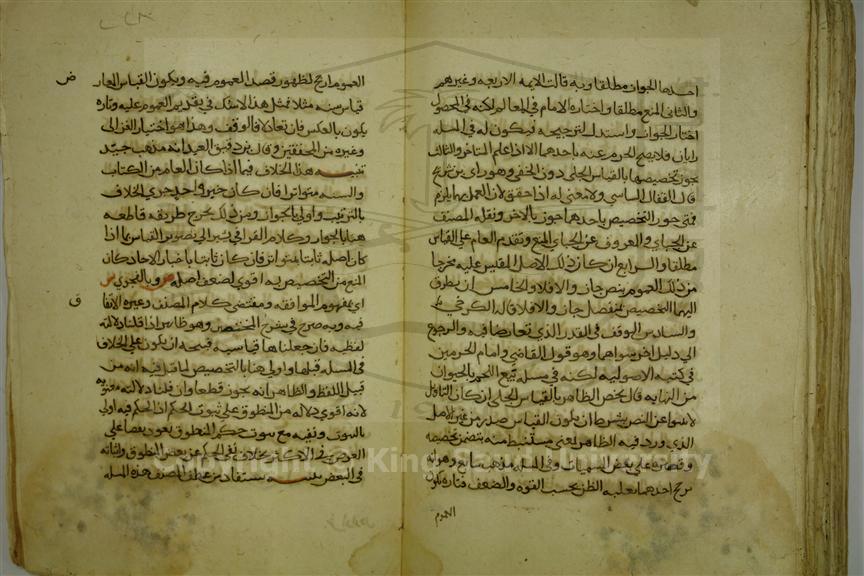 احدها الجواز مطلقا وبه قالت الايمة الاربعه وغيرهم
والثاني المنع مطلقا واختاره الامام في المعالم لكنه في المحصول
اختار الجواز واستدل لترجيحه فيكون له في المسله
رايان فلا يصح الجزم عنه باحدهما الا اذا علم المتاخر والثالث
يجوز تخصيصها بالقياس الجلي دون الخفي وهو راي بن سريج
قال القفال الشاسي ولا معنى له اذا حقق لان العمل بهما يلزم
فمتى جوز التخصيص باحدها جوز بالاخر ونقله المصنف
عن الجباي والمعروف عن الجباي المنع وتقدم العام علي القياس
مطلقا والرابع ان كان ذلك الاصل المقيس عليه مخرجا
من ذلك العموم بنص جاز والا فلا والخامس ان تطرق
اليها التخصيص بمنفصل جاز والا فلا قاله الكرخي
والسادس الوقف في القدر الذي تعارضا فيه والرجوع
الي دليل اخر سواهما وهو قول القاضي وامام الحرمين
في كتبه الاصوليه لكنه في مسله بيع اللحم بالحيوان
من النهايه قال يخص الظاهر بالقياس الجلي ان كان التاويل
لا ينبوا عن النص بشرط ان يكون القياس صدر من غير الاصل
الذي ورد فيه الظاهر لمعني مستنبط منه يتضمن تخصيصه
وقصره علي بعض المسميات وفي المسله مذهب سابع وهو انه
يرجح احدهما بغلبه الظن بحسب القوه والضعف فتاره يكون
العموم
العموم ارجح لظهور قصد العموم فيه ويكون القياس العار
ض
قياس منه مثلا فمثل هذا لا شك في تقديم العموم عليه وتاره
يكون بالعكس فان تعادلا فالوقف وهذا هو اختيار الغزالي
وغيره من المحققين وقال بن دقيق العيد انه مذهب جيد
تنبيه هذا الخلاف فيما اذا كان العام من الكتاب
والسنه متواترا فان كان خبر واحد جري الخلاف
بالترتيب واولي بالجواز ومن ذلك يخرج طريقه قاطعه
هنا بالجواز وكلام القرافي يشير الي تصوير القياس بما اذا
كان اصله ثابتا بمتواتر فان كان ثابتا باخبار الاحاد كان
المنع من التخصيص به اقوي لضعف اصله ص وبالفحوي س
اي بمفهوم الموافقه ومقتضي كلام المصنف وغيره الاتفا
ق
فيه وبه صرح في شرح المختصر وهو ظاهر اذا قلنا دلالته
لفظيه فان جعلناها قياسيه فيتجه ان يكون علي الخلاف
في المسله قبلها واولي هنا بالتخصيص لما قيل فيه انه من
قبيل اللفظ والظاهر انه يجوز قطعا وان قلنا دلالته معنويه
لانه اقوي دلاله من المنطوق علي ثبوت الحكم اذ الحكم فيه اولي
بالثبوت ونفيه مع ثبوت حكم المنطوق يعود نقضا علي
الغرض في الاكثر بخلاف نفي الحكم عن بعض المنطوق واثباته
في البعض تنبيه يستفاد من عطف المصنف هذه المسله
King Saud University